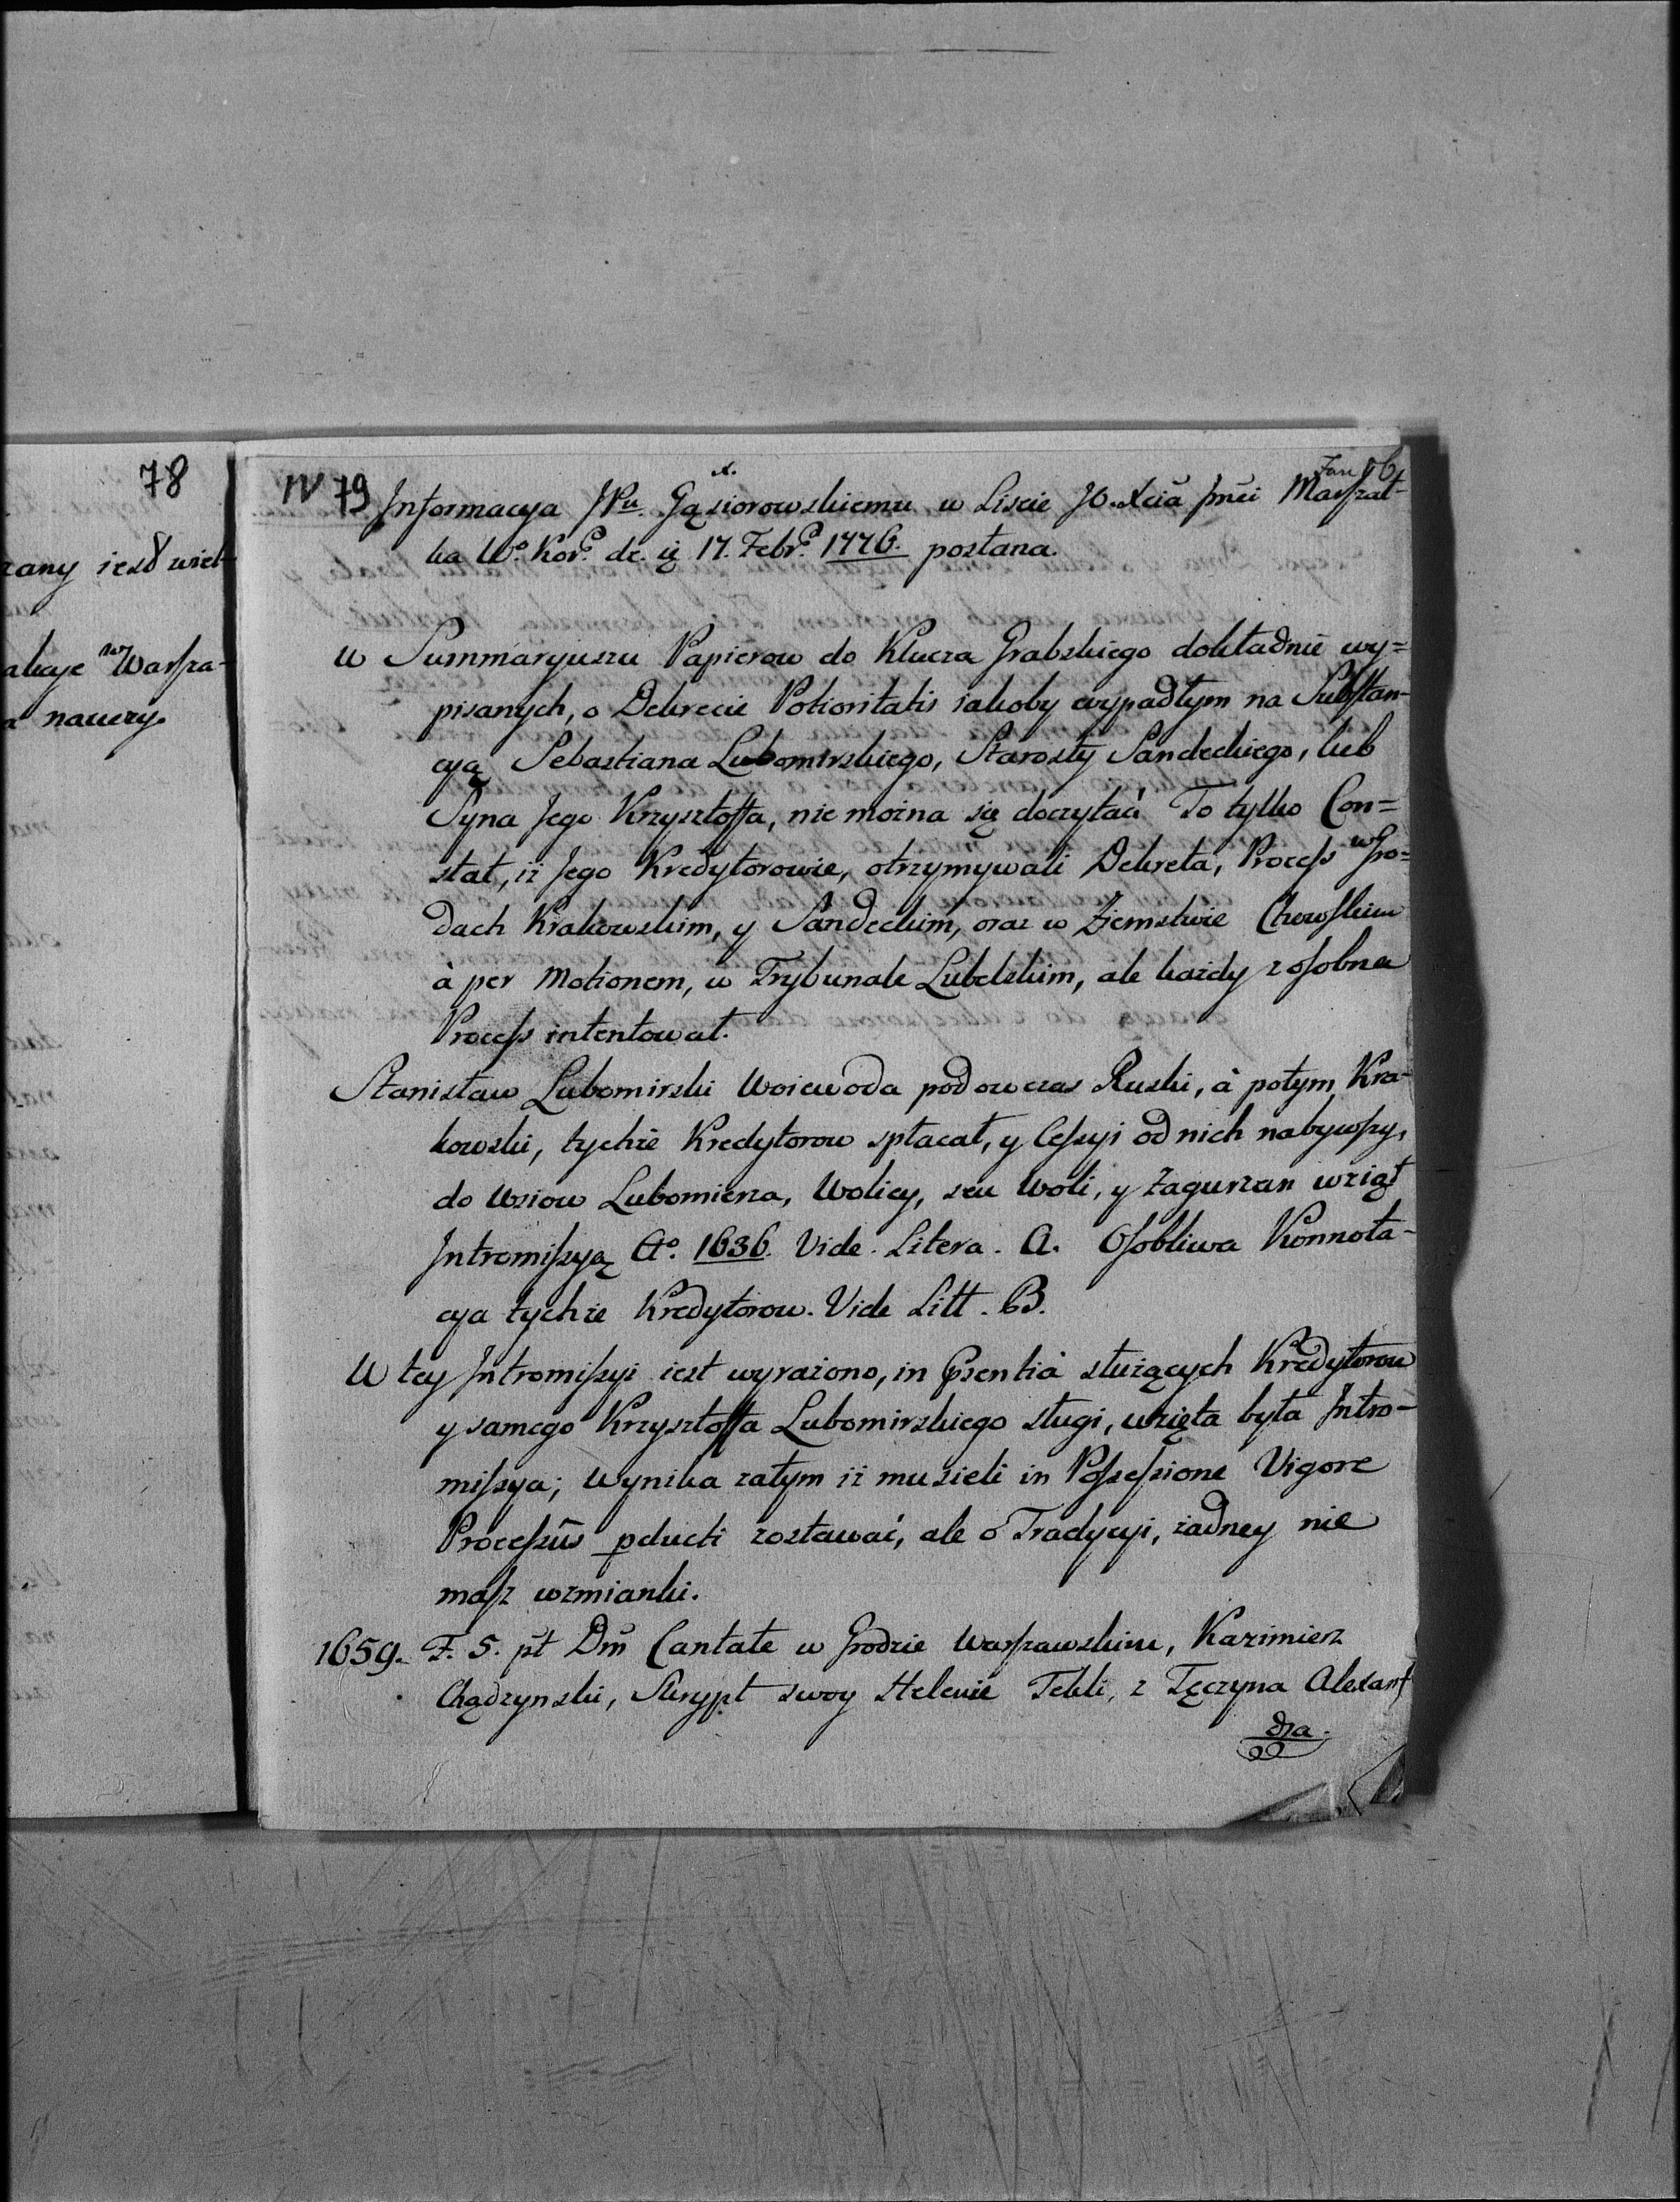 78
zany iest wiel-
akcye na Warsza-
a nauczy.
IV 79
Informacya JPu. Gąsiorowskiemu w Liscie JO. Xcia Jmći Marszał-
ka Wo. Koro. de. 17. Febro. 1776. posłana.
W Summaryuszu Papierow do Klucza Grabskiego dokładnie wy=
pisanych, o Dekrecie Potioritatis iakoby wypadłym na Substan-
cyą Sebastiana Lubomirskiego, Starosty Sandeckiego, lub
Syna Jego Krzysztoffa, nie można się doczytać. To tylko Con=
stat, iż Jego Kredytorowie, otrzymywali Dekreta, Process w Gro=
dach Krakowskim, y Sandeckim, oraz w Ziemstwie Chowskim
à per Motionem, w Trybunale Lubelskim, ale każdy z osobna
Process intentował.
Stanisław Lubomirski Woiewoda podowczas Ruski, à potym Kra-
kowski, tychże Kredytorow spłacał, y Cessyi od nich nabywszy,
do Wsiow Lubomierza, Wolicy, seu Woli, y Zagurzan wziął
Intromissyą Ao. 1636. Vide. Litera. A. Osobliwa Konnota-
cya tychże Kredytorow. Vide Litt. B.
W tey Intromissyi iest wyrażono, in Psentià służących Kredytorow
y samego Krzysztoffa Lubomirskiego sługi, wzięta była Intro-
missya; wynika zatym iż musieli in Possessione Vigore
Processûs pducti zostawać, ale o Tradycyi, żadney nie
masz wzmianki.
1659. F. 5. pt Dm Cantate w Grodzie Warszawskim, Kazimierz
Chądzynski, Skrypt swoy Helenie Tekli, z Tęczyna Alexan-
dra.